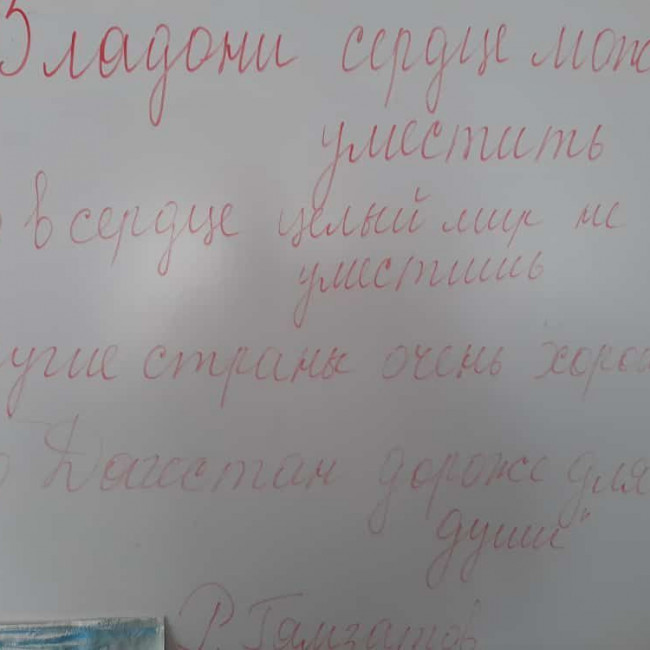 Владони сердце мож
уместить
в сердце целый мир не
уместишь
угие страны очень хорош
Дагестан дороже для
души"
Р. Гамзатов